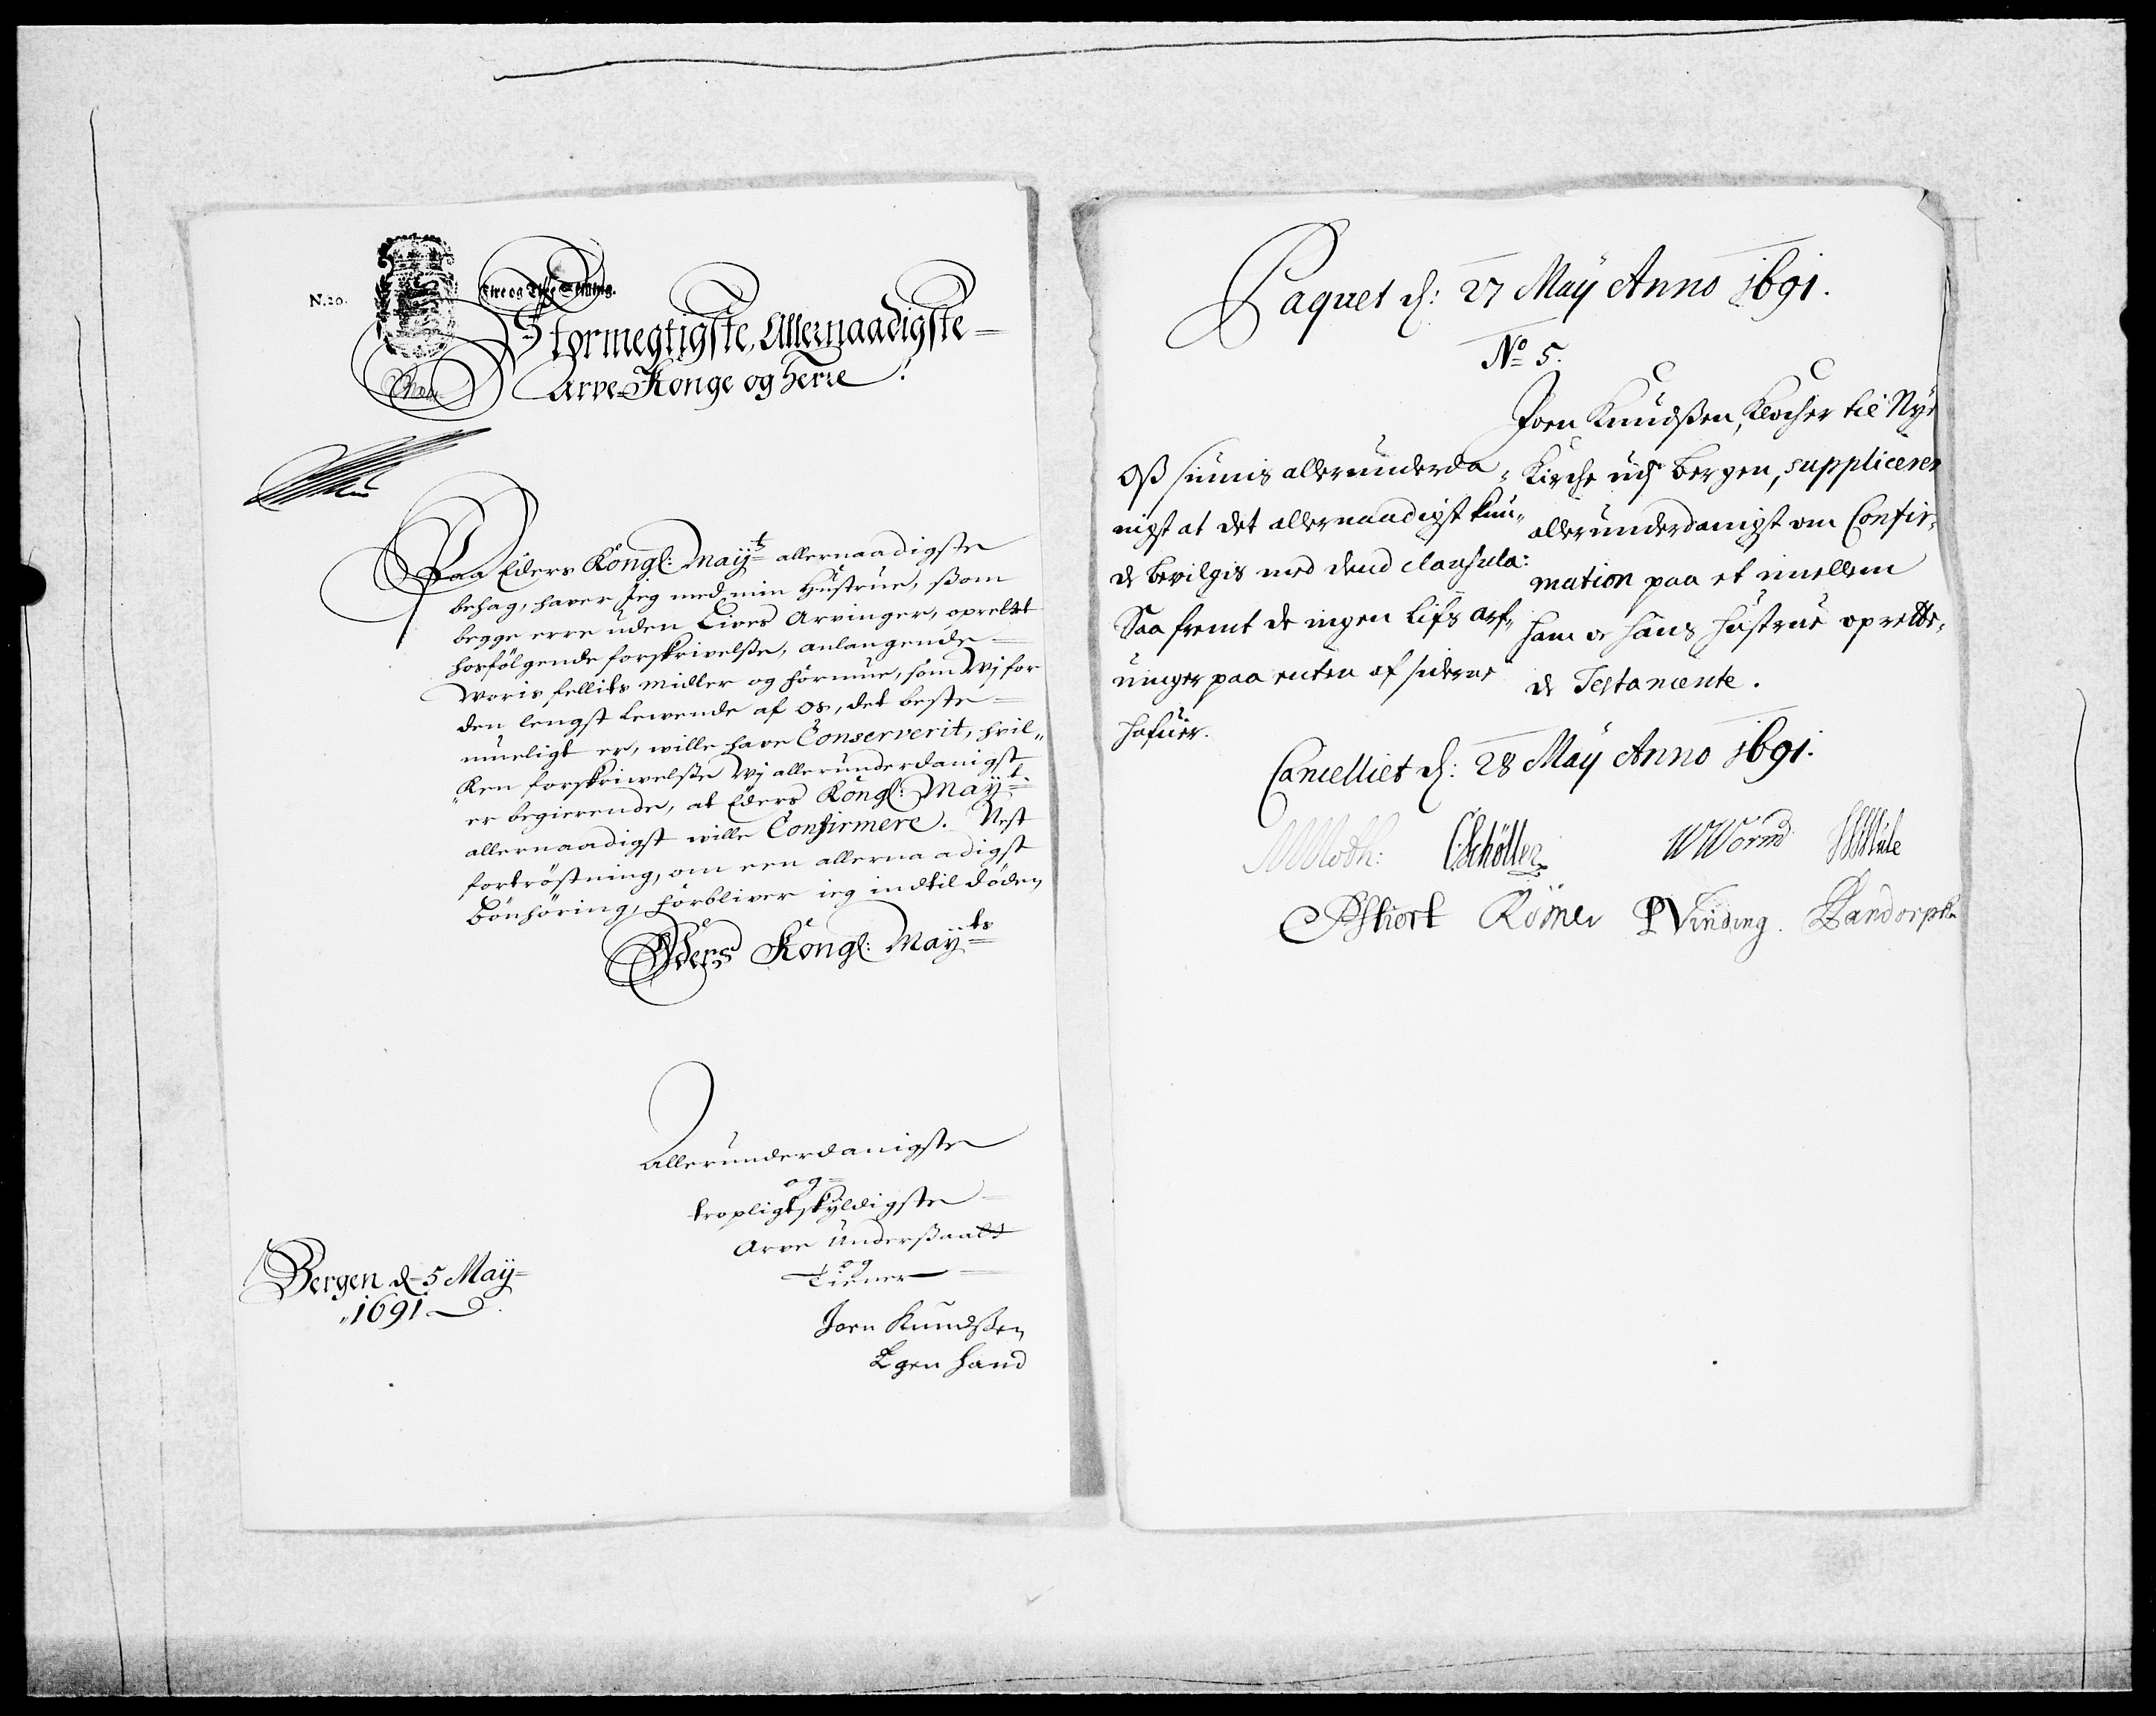 N.20.
Fire og Tive Skilling.
Stormegtigste, Allernaadigste
Arve-Konge og Herre!
Paa Eders Kongl: Mayts allernaadigste
behag, haver Jeg med min Hustrue, ßom
begge erre uden Lives Arvinger, oprettet
hosfölgende forskrivelße, anlangende
Woris fellits midler og formue, som Wj for
den lengst Lewende af os, det beste
mueligt er, wille have Conserverit, hvil„
„ken forskriwelße Wj allerunderdanigst
er begierende, at Eders Kongl: Mayt
allernaadigst wille Confirmere. Nest
fortröstning, om een allernaadigst
Bönhöring, forbliver ieg indtil döden
Eders Kongl: Mayts
Allerunderdanigste
og
tropligtskyldigste
Arve Underßaatt
og
Tiener
Bergen d. 5 Maÿ
1691
Joen Knudßen
Egen Hand
Paquet d: 27 Maÿ Anno 1691.
No 5.
Joen Knudßen, Klocher til Nye
Kirche udj Bergen, supplicerer
allerunderdanigst om Confir„
mation paa et imellem
ham oc hans hustrue oprette„
de Testamente.
Oß siunis allerunderda„
nigst at det allernaadigst kun„
de bevilgis med dend clausula:
Saa fremt de ingen lifs arf„
uinger paa enten af siderne
hafuer.
Cancelliet d: 28 Maÿ Anno 1691.
MMoth: CSchöller WWorm HMule
PSkort Römer PVinding. Bandorph